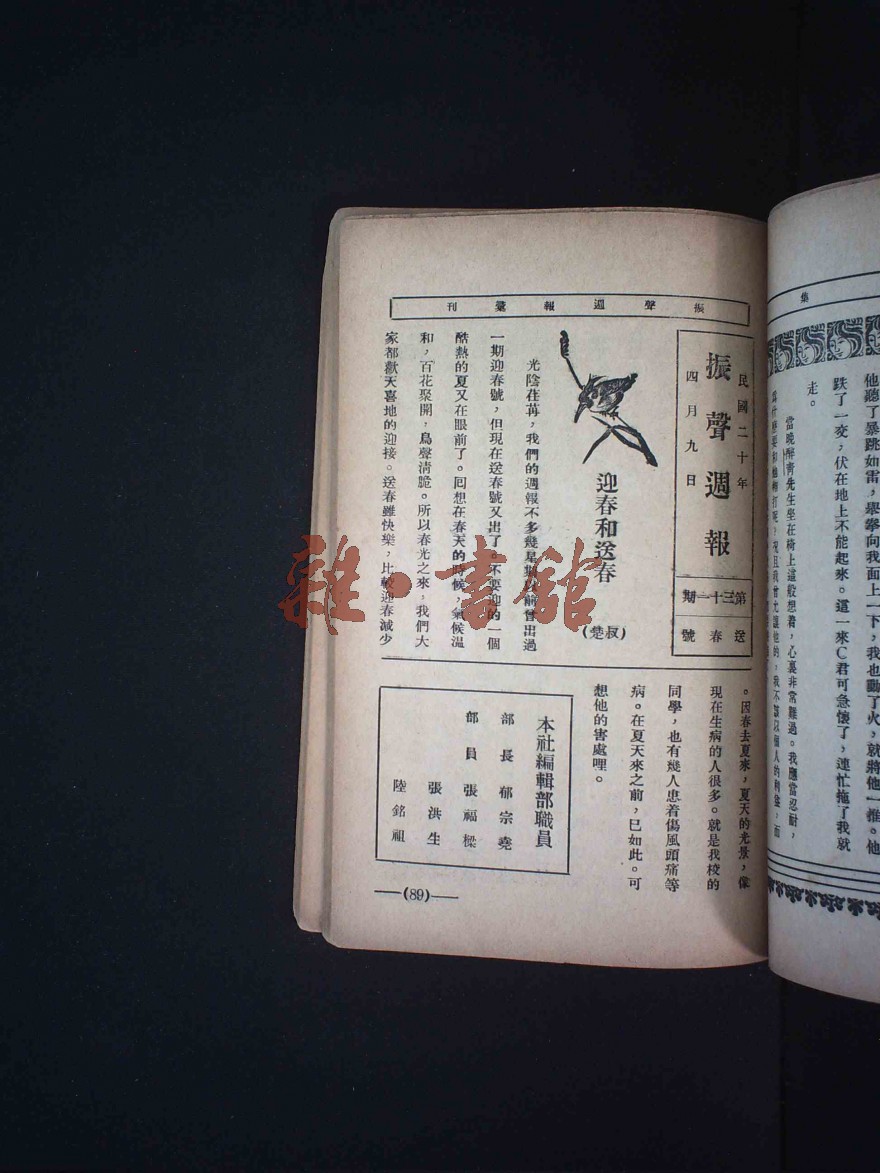 振聲週報彙刊
民國二十年
四月九日
振聲週報
第三十一期
送春號
迎春和送春
(叔楚)
光陰荏苒，我們的週報不多幾星期以前曾出過
一期迎春號，但現在送春號又出了。不要迎的一個
酷熱的夏又在眼前了。回想在春天的時候，氣候溫
和，百花聚開，鳥聲清脆。所以春光之來，我們大
家都歡天喜地的迎接。送春雖快樂，比較迎春減少
。因春去夏來，夏天的光景，像
現在生病的人很多。就是我校的
同學，也有幾人患着傷風頭痛等
病。在夏天來之前，已如此。可
想他的害處哩。
本社編輯部職員
部長 郁宗堯
部員 張福樑
張洪生
陸銘祖
(89)
雜·書館
集
他聽了暴跳如雷，舉拳向我面上一下，我也動了火，就將他一推。他
跌了一交，伏在地上不能起來。這一來C君可急懷了，連忙拖了我就
走。
當晚醉青先生坐在椅上這般想着，心裏非常難過。我應當忍耐，
爲什麽要和他相打呢，況且我曾允讓他的，我不該以個人的利益，而